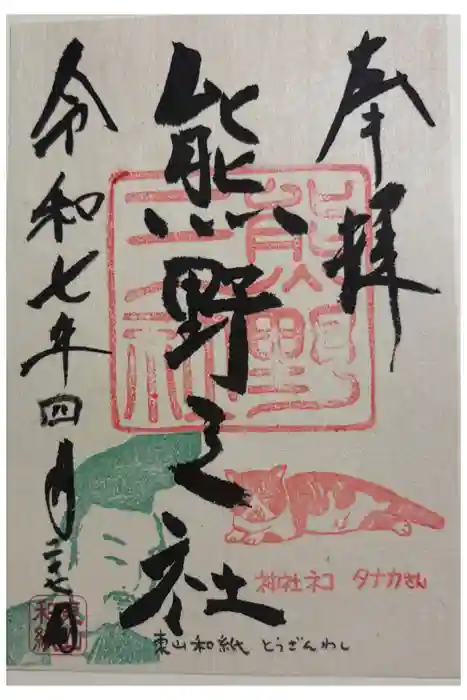 奉拝
熊野之社
令和七年四月二十七日
熊野
神社ネコ タナカさん
東山和紙 とうざんわし
東山和紙